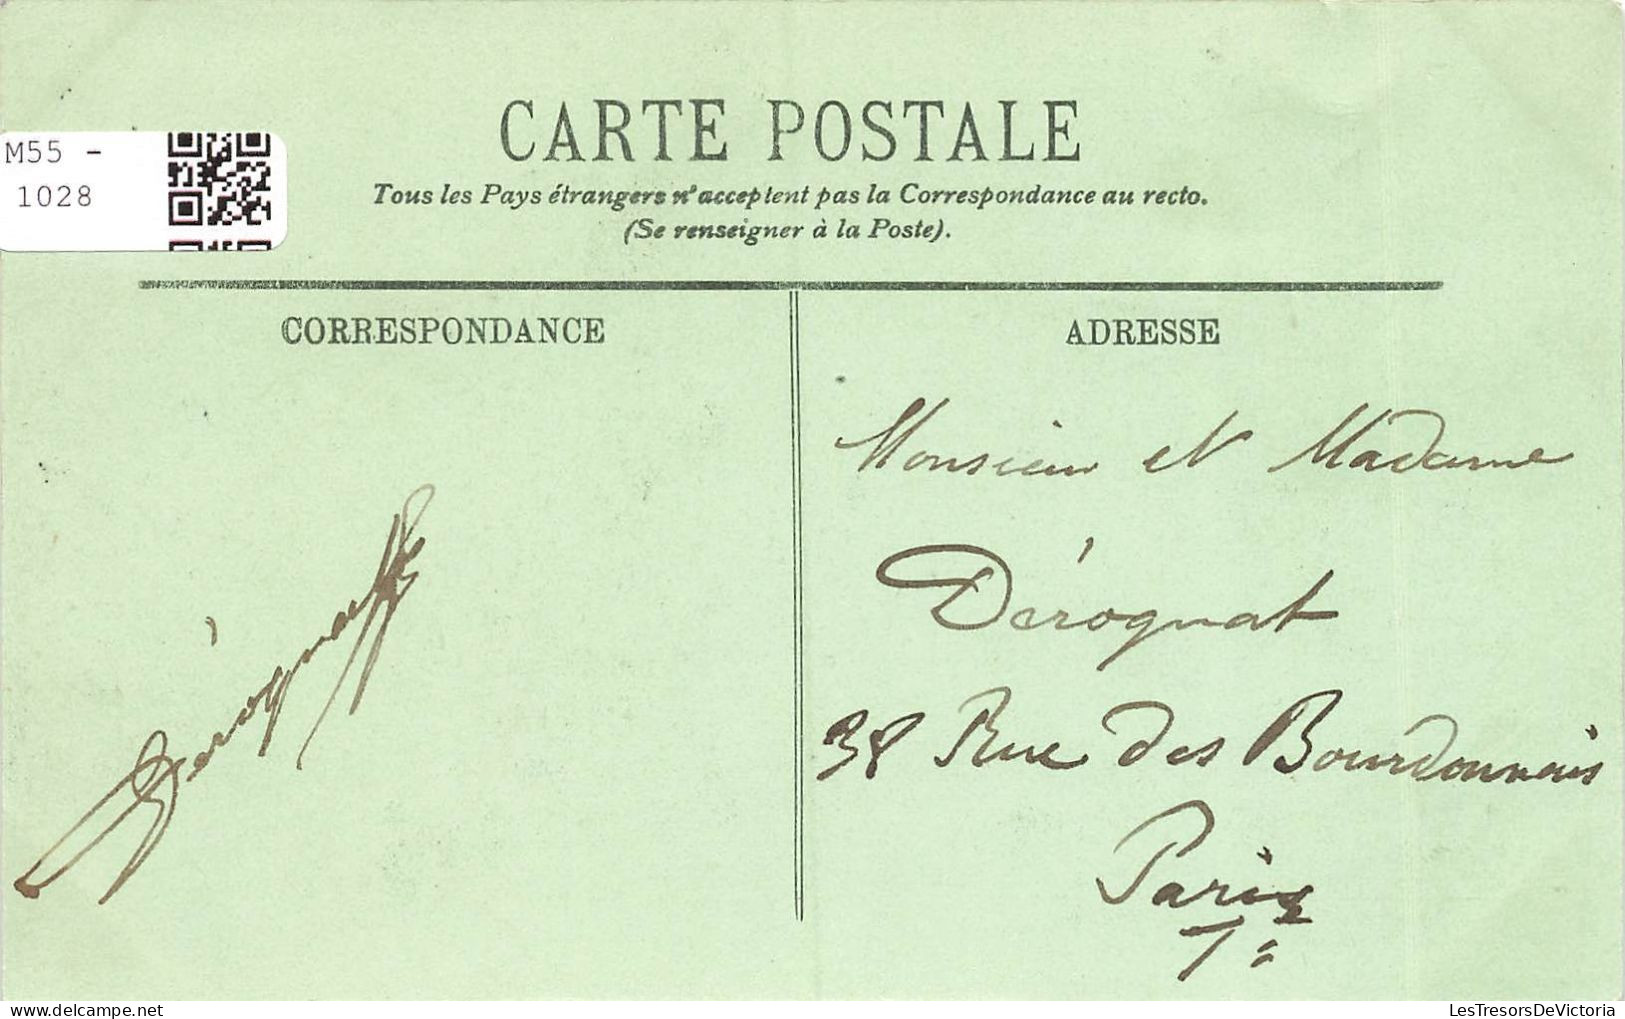 CARTE POSTALE
M55 -
1028
Tous les Pays étrangers n'acceptent pas la Correspondance au recto.
(Se renseigner à la Poste).
CORRESPONDANCE
ADRESSE
Dérognat
Monsieur et Madame
Dérognat
38 Rue des Bourdonnais
Paris
LesTresorsDeVictoria